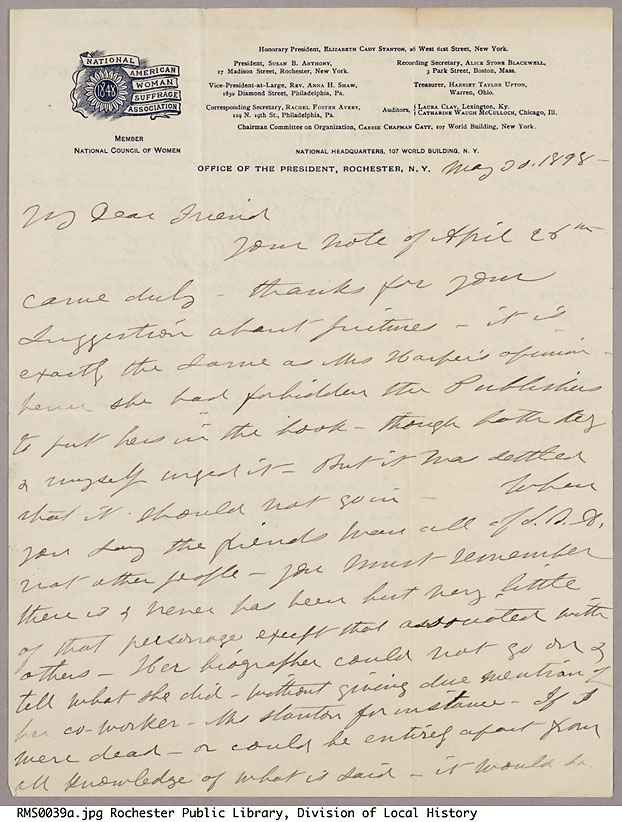 Honorary President, ELIZABETH CADY STANTON, 26 West 61st Street, New York.
President, SUSAN B. ANTHONY,
17 Madison Street, Rochester, New York.
Recording Secretary, ALICE STONE BLACKWELL,
3 Park Street, Boston, Mass.
Vice-President-at-Large, REV. ANNA H. SHAW,
1830 Diamond Street, Philadelphia, Pa.
Treasurer, HARRIET TAYLOR UPTON,
Warren, Ohio.
Corresponding Secretary, RACHEL FOSTER AVERY,
119 N. 19th St., Philadelphia, Pa.
Auditors, LAURA CLAY, Lexington, Ky.
CATHARINE WAUGH MCCULLOCH, Chicago, Ill.
Chairman Committee on Organization, CARRIE CHAPMAN CATT, 107 World Building, New York.
NATIONAL
AMERICAN
WOMAN
SUFFRAGE
ASSOCIATION
1848
MEMBER
NATIONAL COUNCIL OF WOMEN
NATIONAL HEADQUARTERS, 107 WORLD BUILDING, N. Y.
OFFICE OF THE PRESIDENT, ROCHESTER, N. Y. May 1898 -
My Dear Friend
Your note of April 26th
came duly - thanks for your
suggestion about pictures - it is
exactly the same as Mrs Harper's opinion -
hence she had forbidden the Publishers
to put hers in the book - though both they
& myself urged it - But it was settled
that it should not go in - When
you say the friends want all of S. B. A.
not other people - you must remember
there is & never has been but very little
of that personage except that associated with
others - Her biographer could not go on &
tell what she did - without giving due mention of
her co-worker - Mrs Stanton for instance - If I
were dead - or could be entirely apart from
all knowledge of what is said - it would be
RMS0039a.jpg Rochester Public Library, Division of Local History